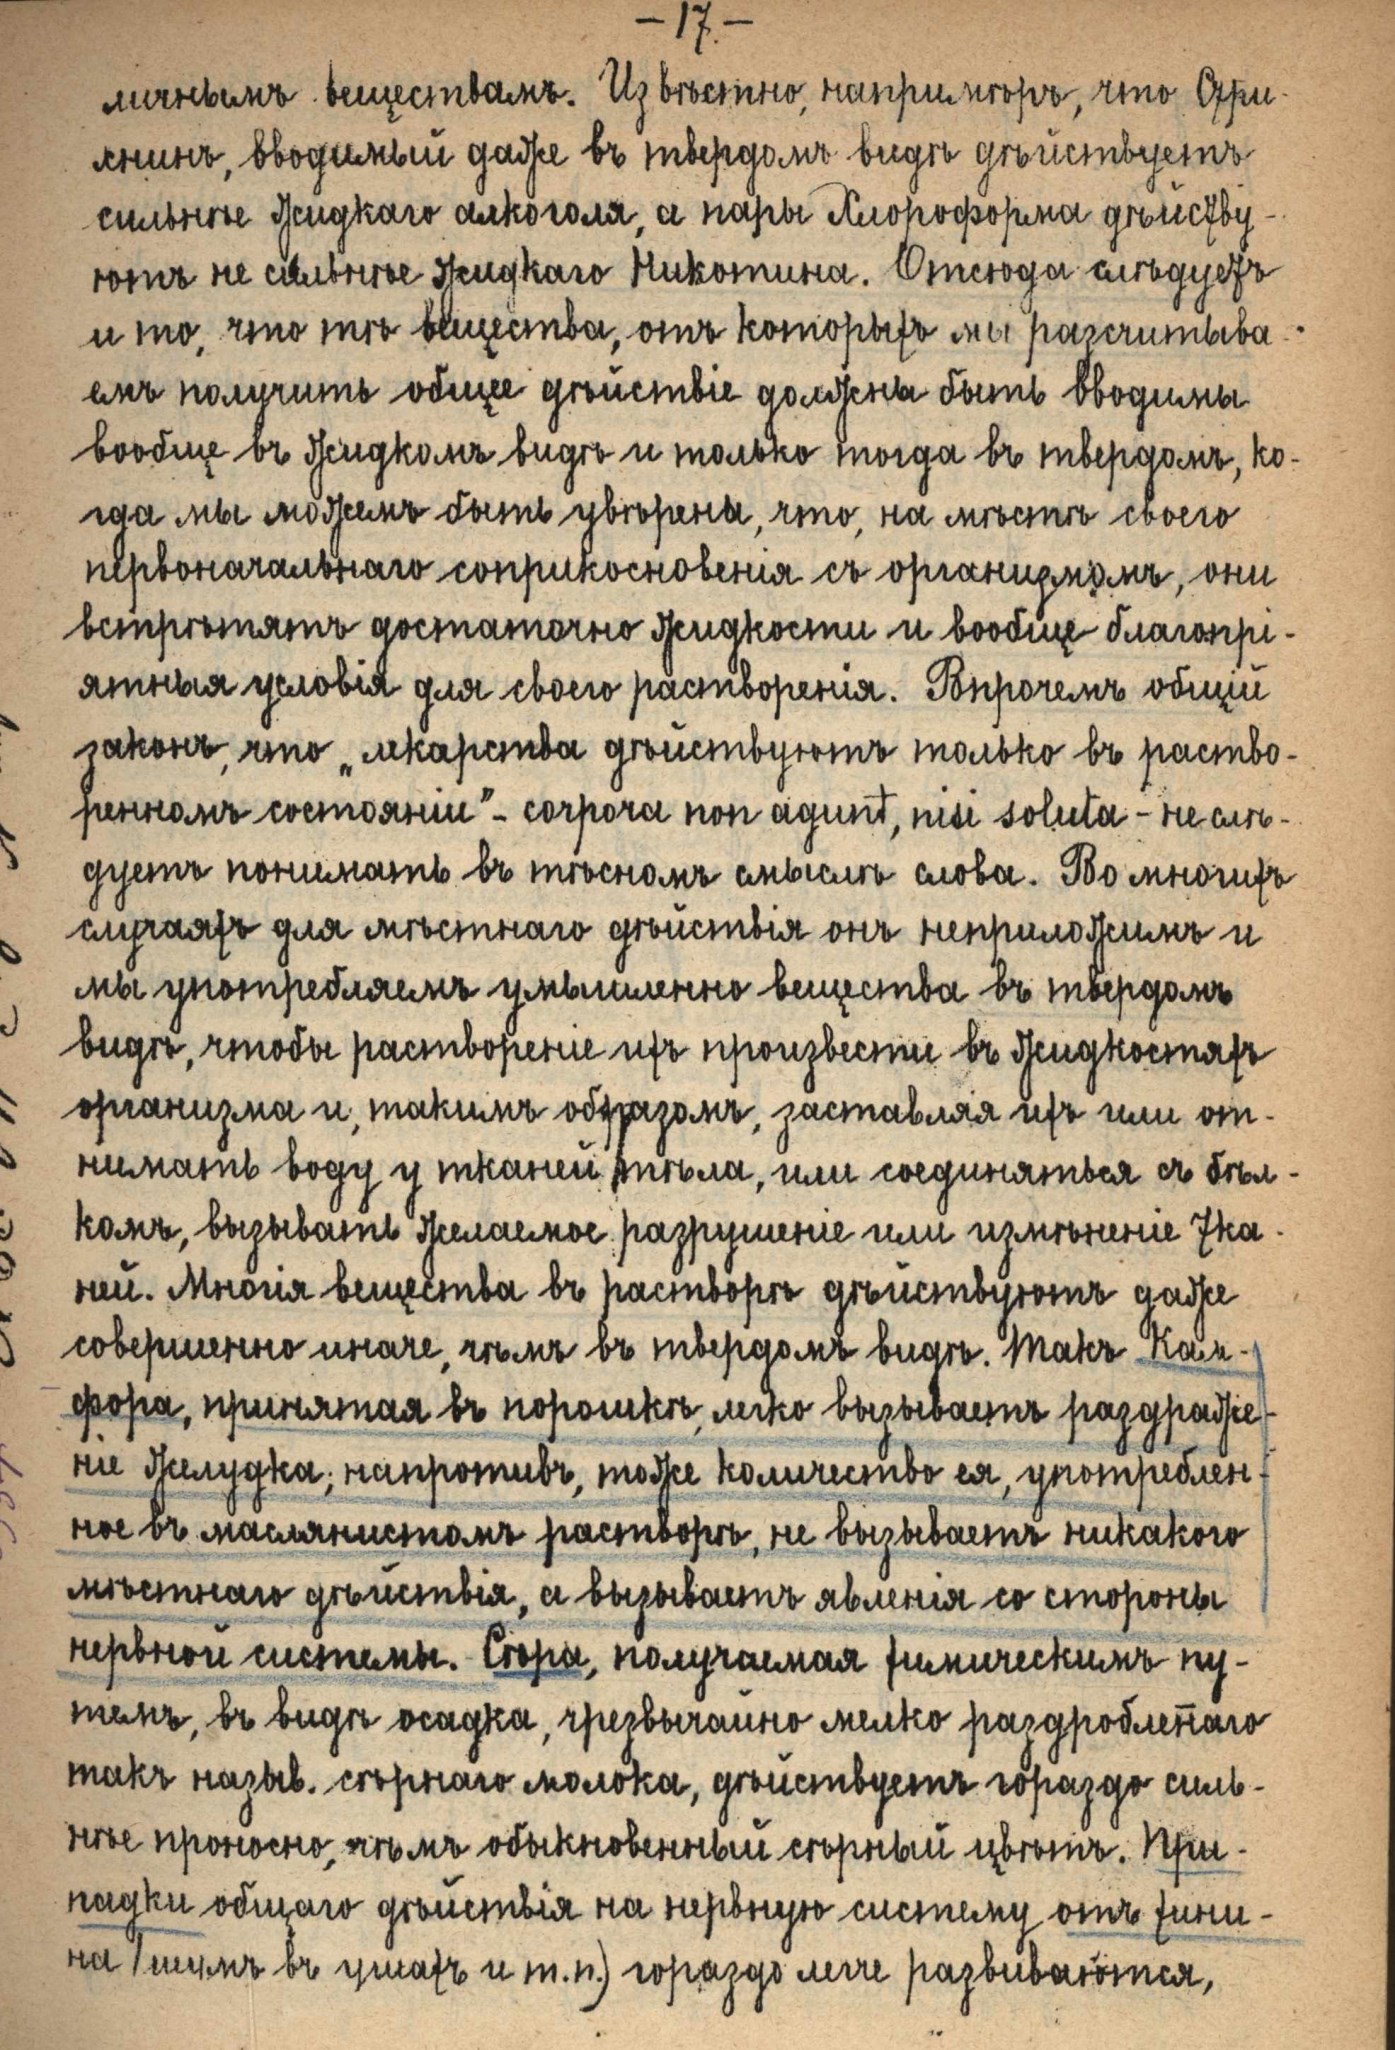 — 17. —
личнымъ веществамъ. Извѣстно, напримѣръ, что Стри-
хнинъ, вводимый даже въ твердомъ видѣ дѣйствуетъ
сильнѣе жидкаго алкоголя, а пары Хлороформа дѣйству-
ютъ не сильнѣе жидкаго Никотина. Отсюда слѣдуетъ
и то, что тѣ вещества, отъ которыхъ мы разсчитыва-
емъ получить общее дѣйствіе должны быть вводимы
вообще въ жидкомъ видѣ и только тогда въ твердомъ, ко-
гда мы можемъ быть увѣрены, что, на мѣстѣ своего
первоначальнаго соприкосновенія съ организмомъ, они
встрѣтятъ достаточно жидкости и вообще благопрі-
ятныя условія для своего растворенія. Впрочемъ общій
законъ, что „лекарства дѣйствуютъ только въ раство-
ренномъ состояніи" - corpora non agunt, nisi soluta - не слѣ-
дуетъ понимать въ тѣсномъ смыслѣ слова. Во многихъ
случаяхъ для мѣстнаго дѣйствія онъ неприложимъ и
мы употребляемъ умышленно вещества въ твердомъ
видѣ, чтобы раствореніе ихъ произвести въ жидкостяхъ
организма и, такимъ образомъ, заставляя ихъ или от-
нимать воду у тканей тѣла, или соединяться съ бѣл-
комъ, вызывать желаемое разрушеніе или измѣненіе тка-
ней. Многія вещества въ растворѣ дѣйствуютъ даже
совершенно иначе, чѣмъ въ твердомъ видѣ. Такъ Кам-
фора, принятая въ порошкѣ, легко вызываетъ раздраже-
ніе желудка; напротивъ, тоже количество ея, употреблен-
ное въ маслянистомъ растворѣ, не вызываетъ никакого
мѣстнаго дѣйствія, а вызываетъ явленія со стороны
нервной системы. Сѣра, получаемая химическимъ пу-
темъ, въ видѣ осадка, чрезвычайно мелко раздробленаго
такъ назыв. сѣрнаго молока, дѣйствуетъ гораздо силь-
нѣе проносно, чѣмъ обыкновенный сѣрный цвѣтъ. При-
падки общаго дѣйствія на нервную систему отъ хини-
на (шумъ въ ушахъ и т.п.) гораздо легче развиваются,